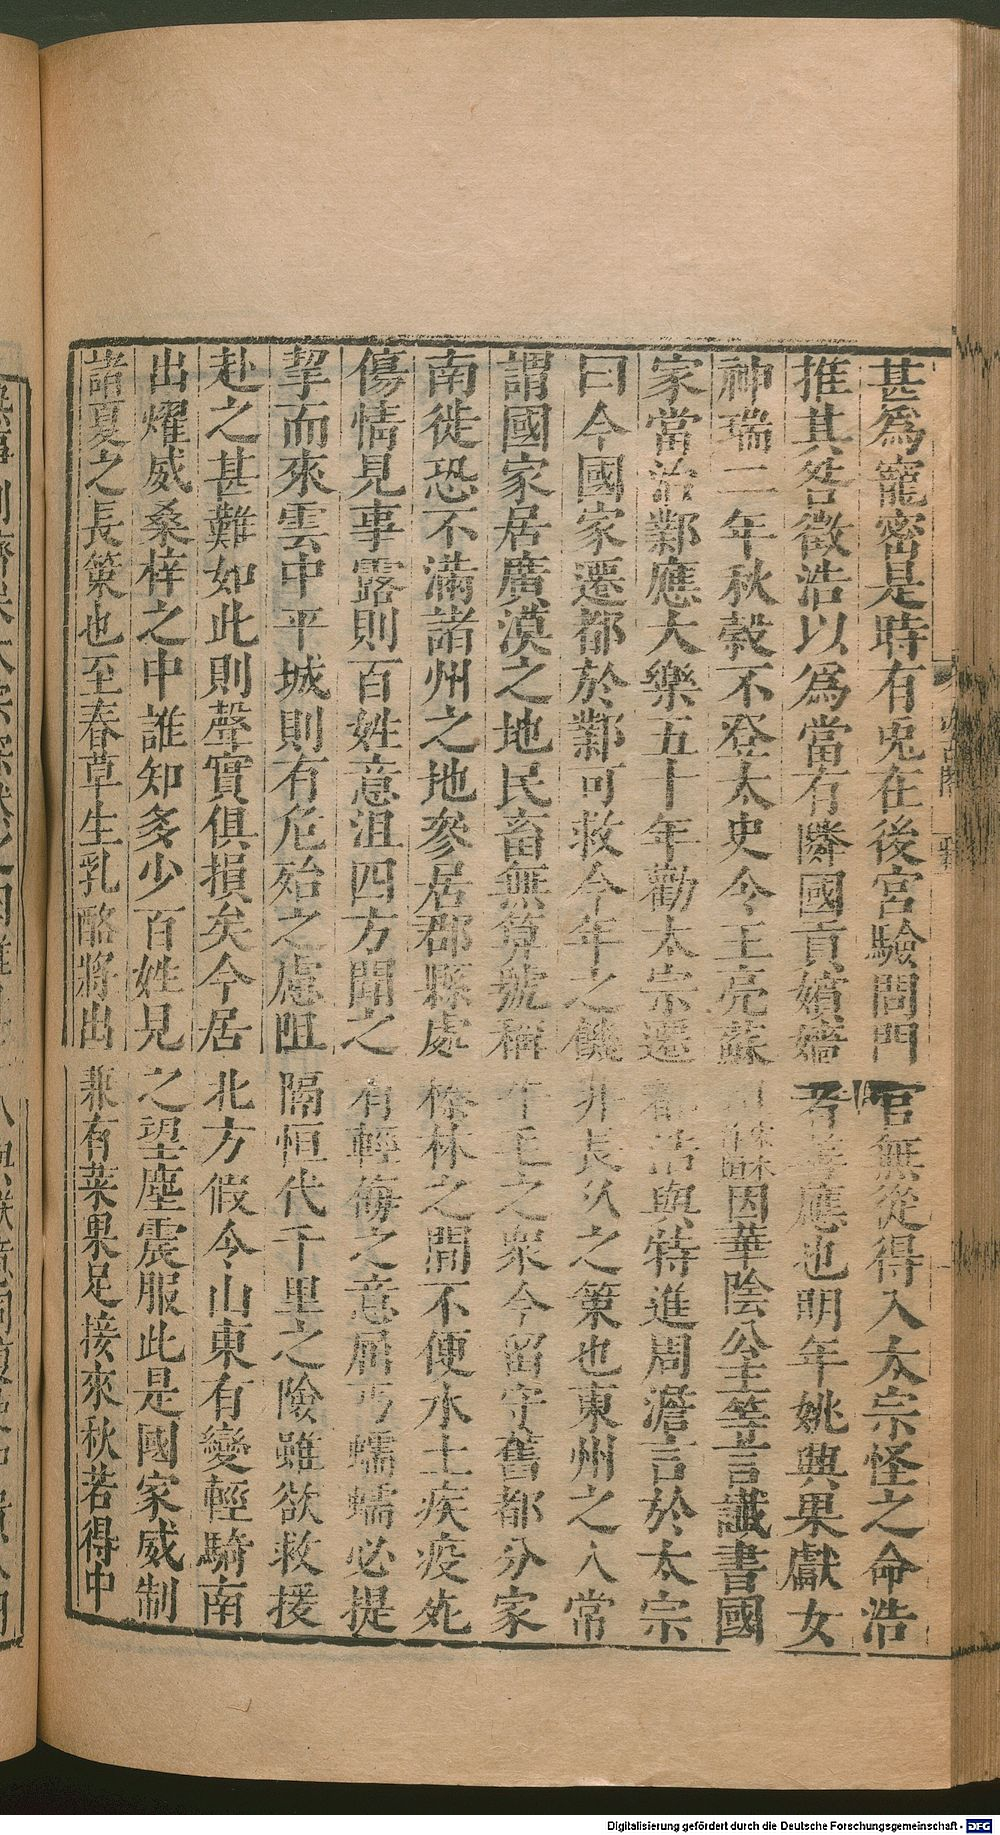 甚為寵密是時有兎在後宮驗問門官無從得入太宗怪之命浩
推其咎徵浩以為當有隣國貢嬪嬙者善應也明年姚興果獻女
神瑞二年秋穀不登太史令王亮蘇垣因華陰公主等言讖書國
家當治鄴應大樂五十年勸太宗遷都浩與特進周澹言於太宗
曰今國家遷都於鄴可救今年之饑非長久之策也東州之人常
謂國家居廣漠之地民畜無算號稱牛毛之衆今留守舊都分家
南徙恐不滿諸州之地參居郡縣處榛林之間不便水土疾疫死
傷情見事露則百姓意沮四方聞之有輕侮之意屈丐蠕蠕必提
挈而來雲中平城則有危殆之慮阻隔恒代千里之險雖欲救援
赴之甚難如此則聲實俱損矣今居北方假令山東有變輕騎南
出燿威桑梓之中誰知多少百姓見之望塵震服此是國家威制
諸夏之長策也至春草生乳酪將出兼有菜果足接來秋若得中
Digitalisierung gefördert durch die Deutsche Forschungsgemeinschaft - DFG